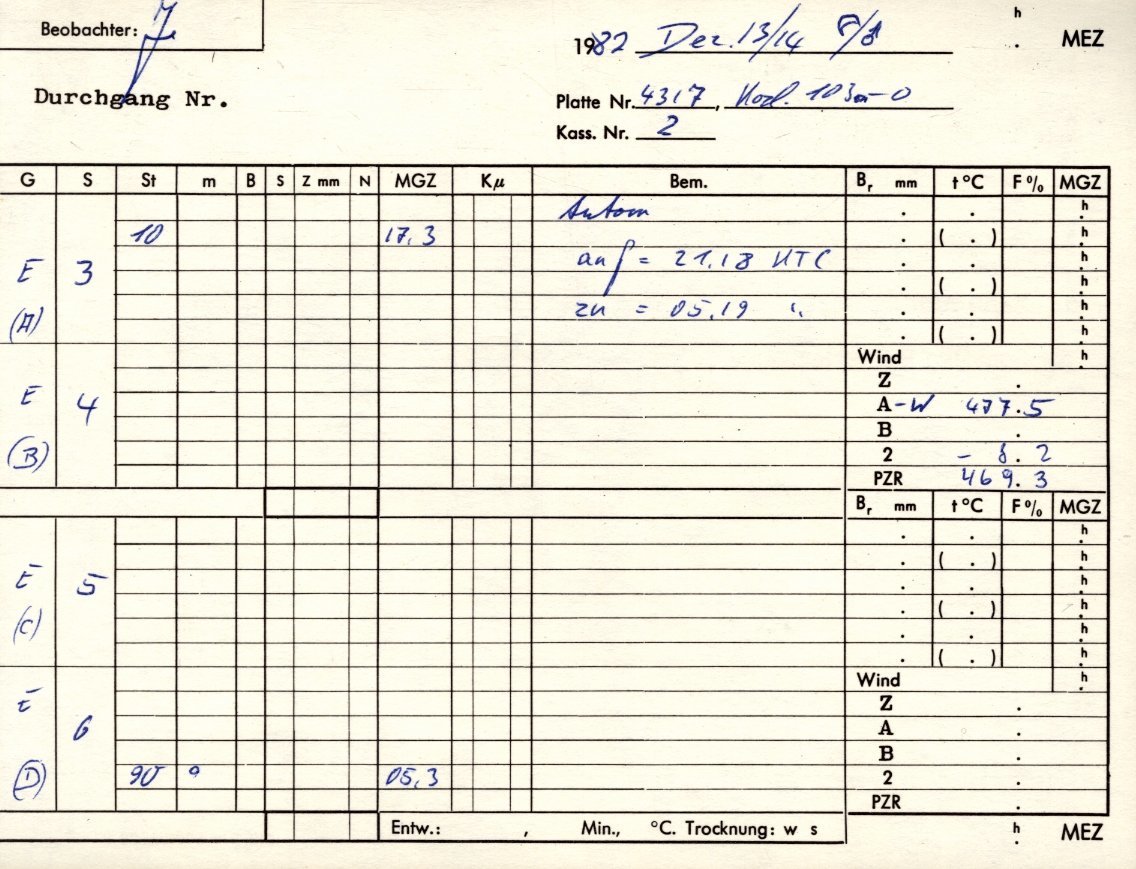 Beobachter: J
h
1982 Dez. 13/14
. MEZ
Durchgang Nr.
Platte Nr. 4317, Kod. 103a-O
Kass. Nr. 2
G S St m B S Z mm N MGZ Kμ Bem. Br mm t °C F % MGZ
Autom . . h
10 17,3 . ( . ) h
E 3 auf = 21.18 UTC . . h
. ( . ) h
(A) zu = 05.19 " . . h
. ( . ) h
Wind h
Z .
E 4 A-W 477.5
B .
(B) 2 - 8.2
PZR 469.3
Br mm t °C F % MGZ
. . h
. ( . ) h
E 5 . . h
. ( . ) h
(C) . . h
. ( . ) h
Wind h
E Z .
6 A .
B .
(D) 90 05,3 2 .
PZR .
Entw.: , Min., °C. Trocknung: w s h
. MEZ